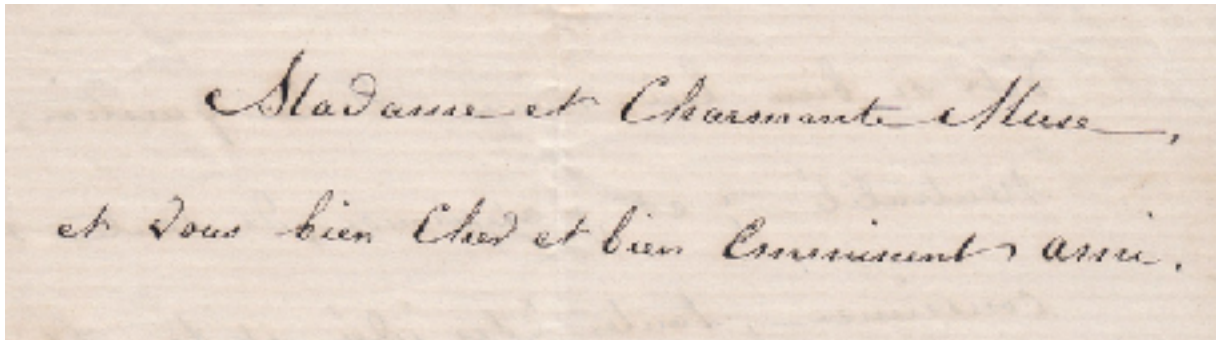 Madame et Charmante Muse,
et vous bien Cher et bien Emminent ami.